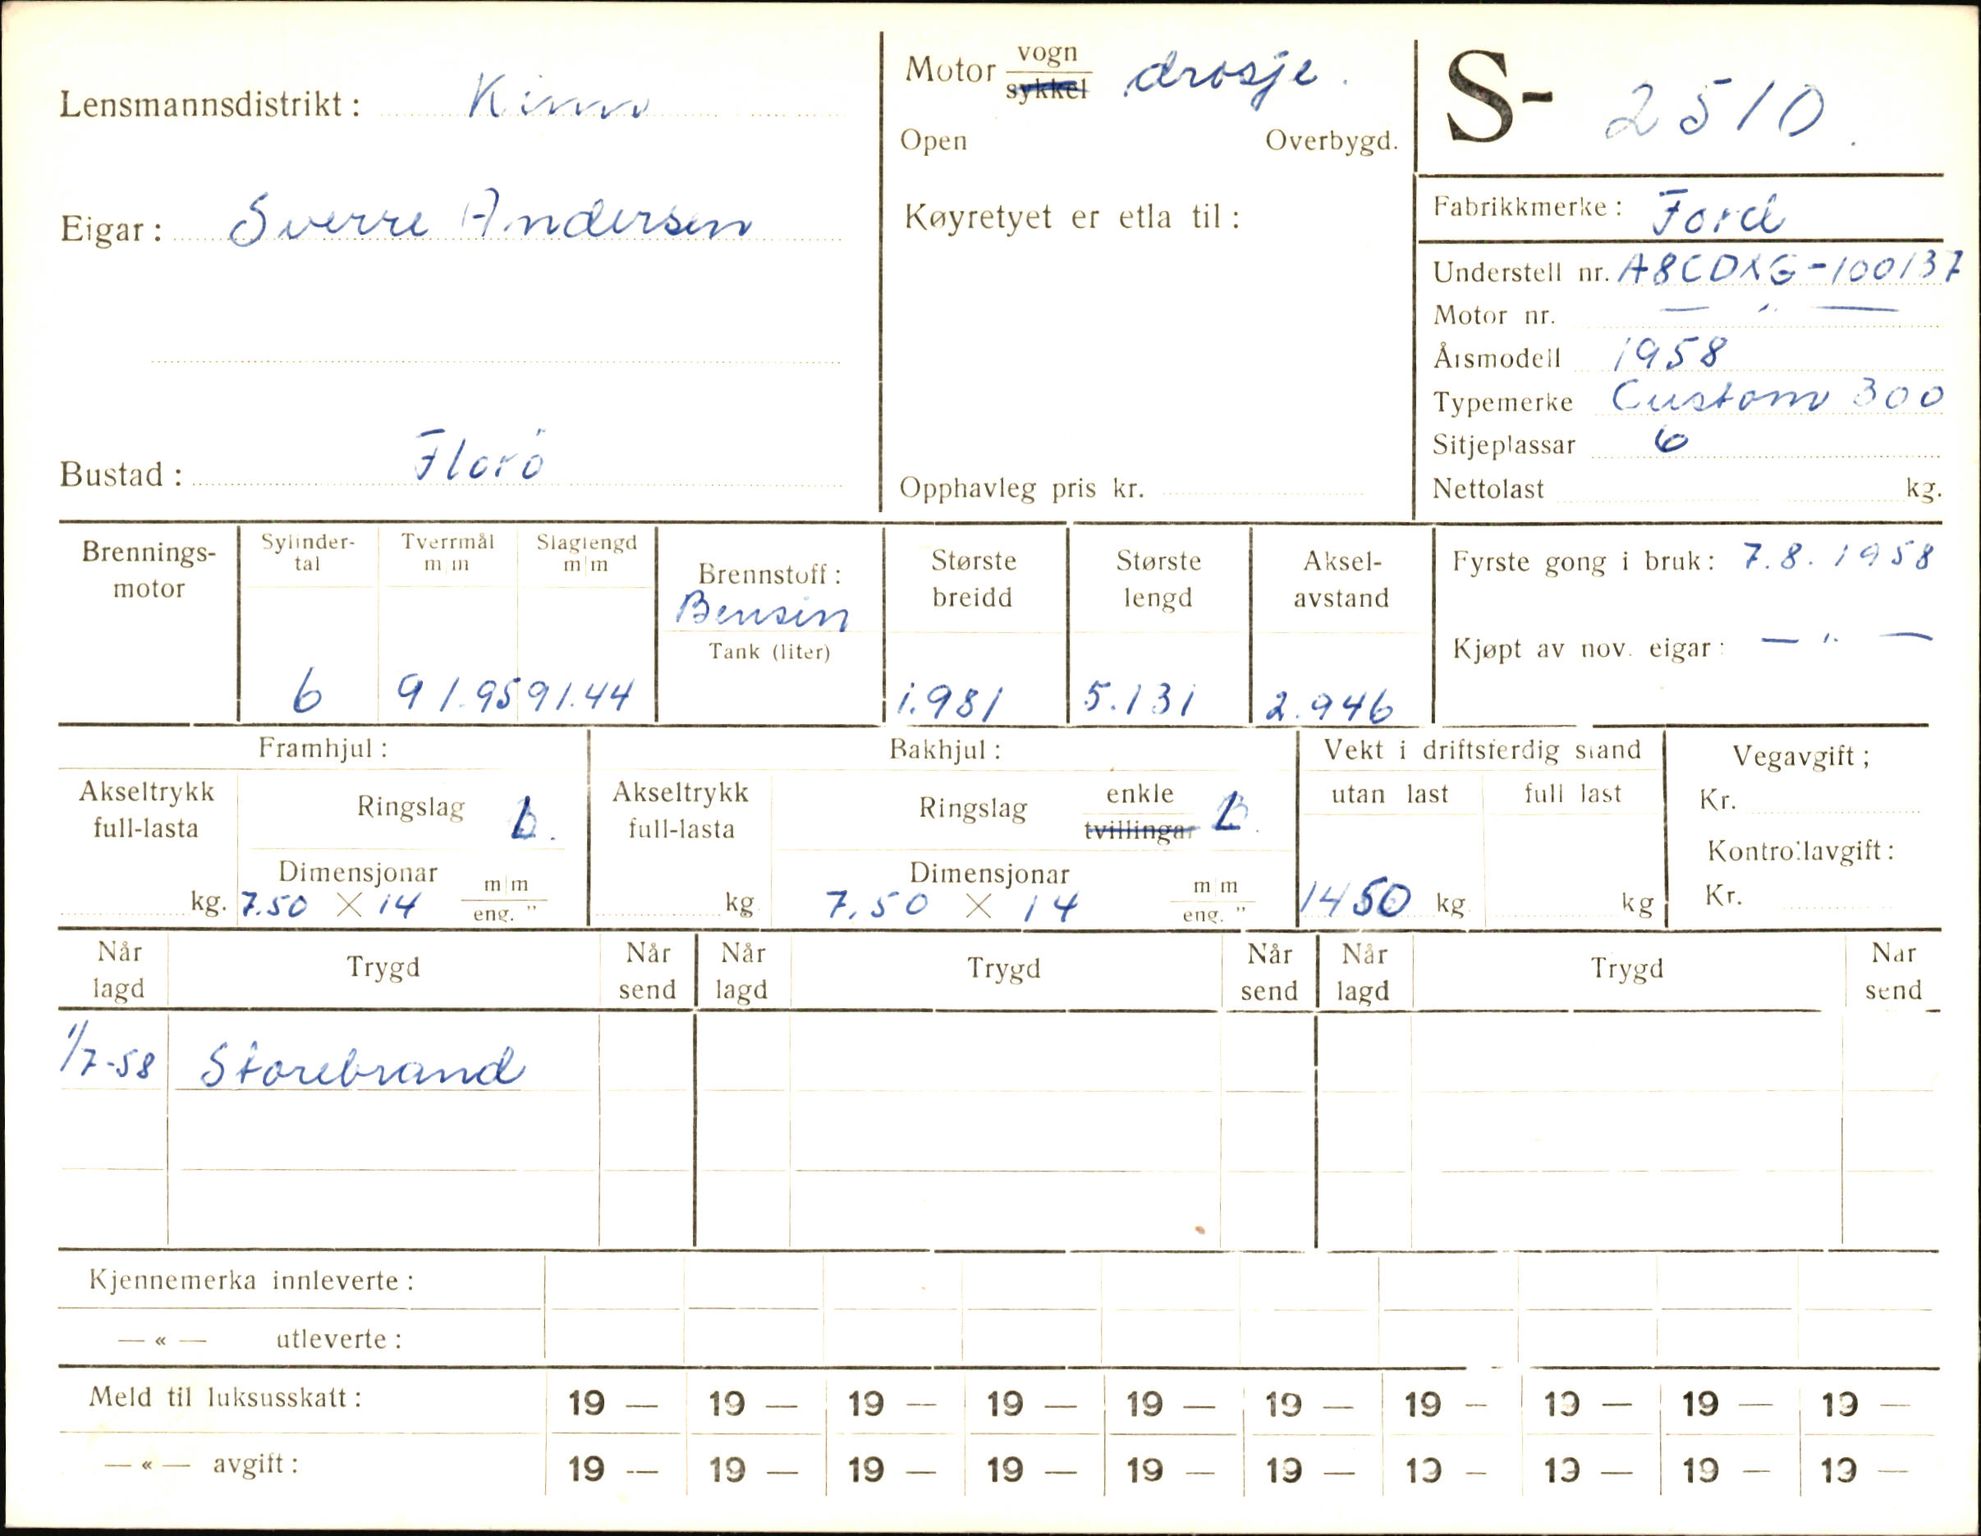 Lensmannsdistrikt: Kinn
Eigar: Sverre Andersen
Bustad: Florö
Motor vogn sykkel drosje.
Open Overbygd.
Køyretyet er etla til:
Opphavleg pris kr.
S- 2510.
Fabrikkmerke: Ford
Understell nr. A8CDXG-100137
Motor nr. — " —
Årsmodell 1958
Typemerke Custom 300
Sitjeplassar 6
Nettolast kg.
Brennings-
motor
Sylinder-
tal
6
Tverrmål
m m
91.95
Slaglengd
m m
91.44
Brennstoff:
Bensin
Tank (liter)
Største
breidd
1.981
Største
lengd
5.131
Aksel-
avstand
2.946
Fyrste gong i bruk: 7.8.1958
Kjøpt av nov. eigar: — " —
Framhjul:
Akseltrykk
full-lasta
kg.
Ringslag L.
Dimensjonar
7.50 × 14 m m
eng. "
Bakhjul:
Akseltrykk
full-lasta
kg
Ringslag enkle
tvillingar L.
Dimensjonar
7.50 × 14 m m
eng. "
Vekt i driftsferdig stand
utan last full last
1450 kg kg
Vegavgift;
Kr.
Kontrollavgift:
Kr.
Når
lagd Trygd Når
send Når
lagd Trygd Når
send Når
lagd Trygd Når
send
1/7-58 Storebrand
Kjennemerka innleverte:
— « — utleverte:
Meld til luksusskatt: 19 — 19 — 19 — 19 — 19 — 19 — 19 — 19 — 19 — 19 —
— « — avgift: 19 — 19 — 19 — 19 — 19 — 19 — 19 — 19 — 19 — 19 —